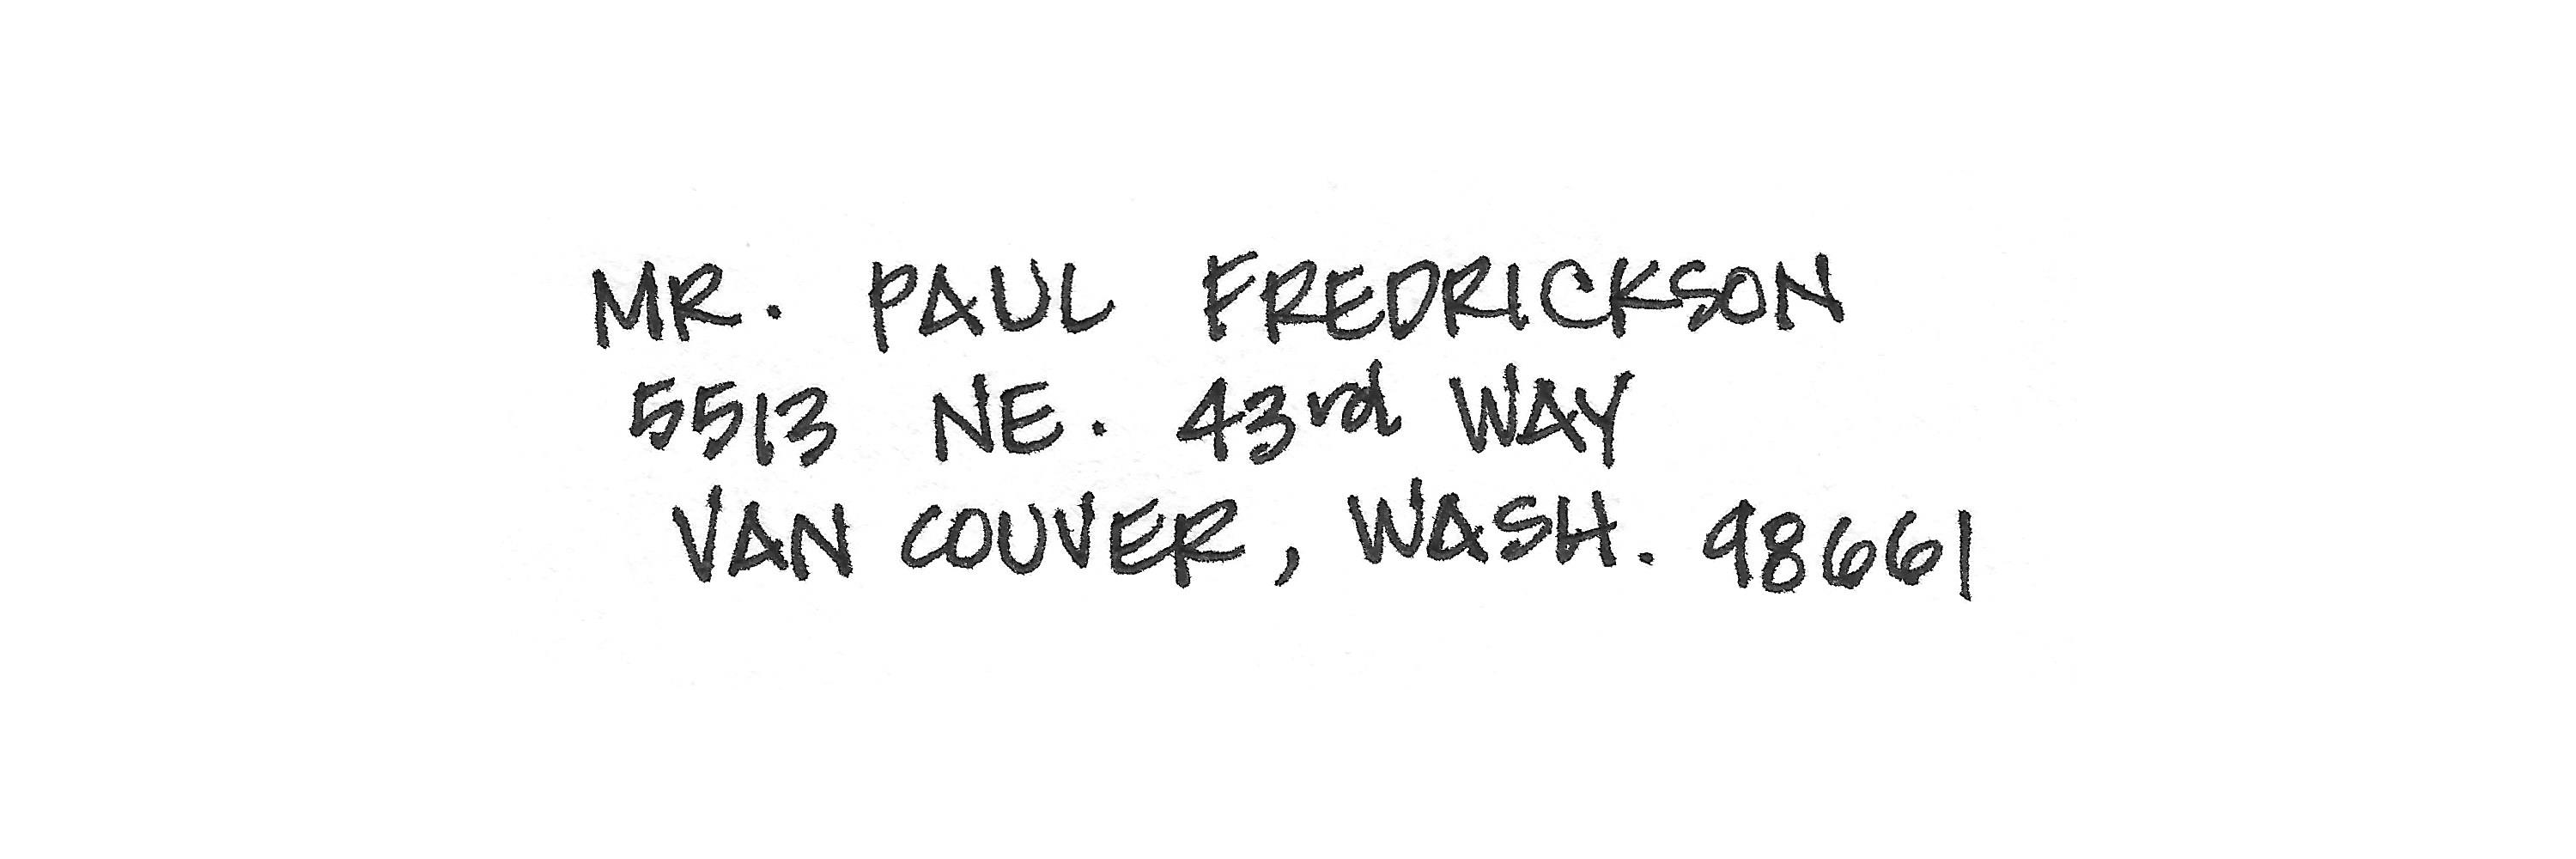 MR. PAUL FREDRICKSON
5513 NE. 43rd WAY
VAN COUVER, WASH. 98661